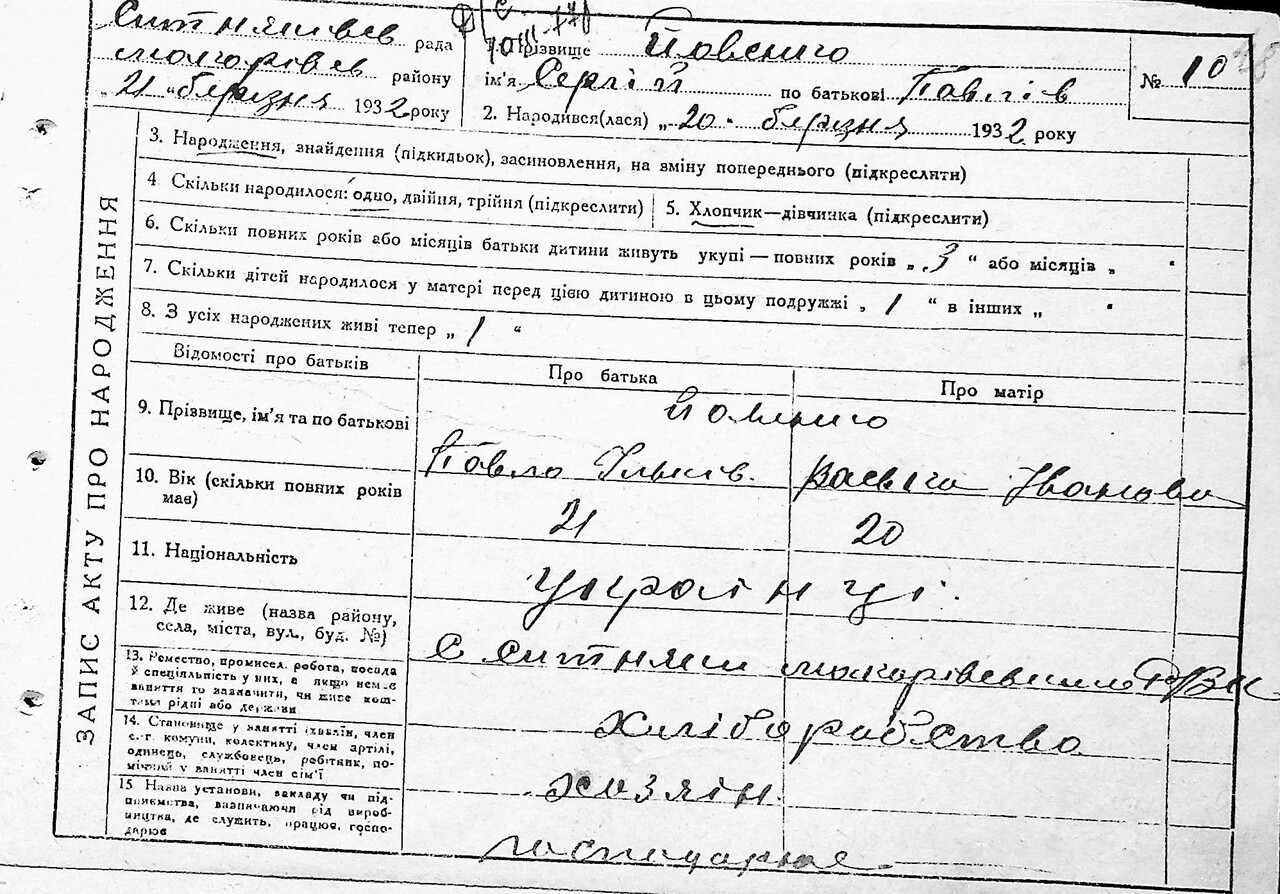 Ситняшівсь рада
макарівсь району
„21 „березня 1932 року
1. Прізвище
ім'я Сергій по батькові Павлів
2. Народився(лася) „20" березня 1932 року
№ 10
ЗАПИС АКТУ ПРО НАРОДЖЕННЯ
3. Народження, знайдення (підкидьок), засиновлення, на вміну попереднього (підкреслити)
4 Скільки народилося: одно, двійня, трійня (підкреслити)
5. Хлопчик—дівчинка (підкреслити)
6. Скільки повних років або місяців батьки дитини живуть укупі — повних років „ 3 " або місяців „ "
7. Скільки дітей народилося у матері перед цією дитиною в цьому подружжі „ 1 " в інших „ "
8. З усіх народжених живі тепер „ 1 "
Відомості про батьків
Про батька
Про матір
9. Прізвище, ім'я та по батькові
Павло Ільків.
Іванова
10. Вік (скільки повних років має)
21
20
11. Національність
українці.
12. Де живе (назва району, села, міста, вул., буд. №)
с Ситняки макарівського РВК
13. Ремество, промисел. робота, посада й спеціяльність у них, а якщо нема заняття то зазначити, чи живе коштами рідні або держави
хліборобство
14. Становище у занятті (хазяїн, член с.-г. комуни, колективу, член артілі, одинець, службовець, робітник, помічний у занятті член сім'ї
хозяїн
15 Назва установи, закладу чи підприємства, зазначаючи рід виробництва, де служить, працює, господарює
господарює